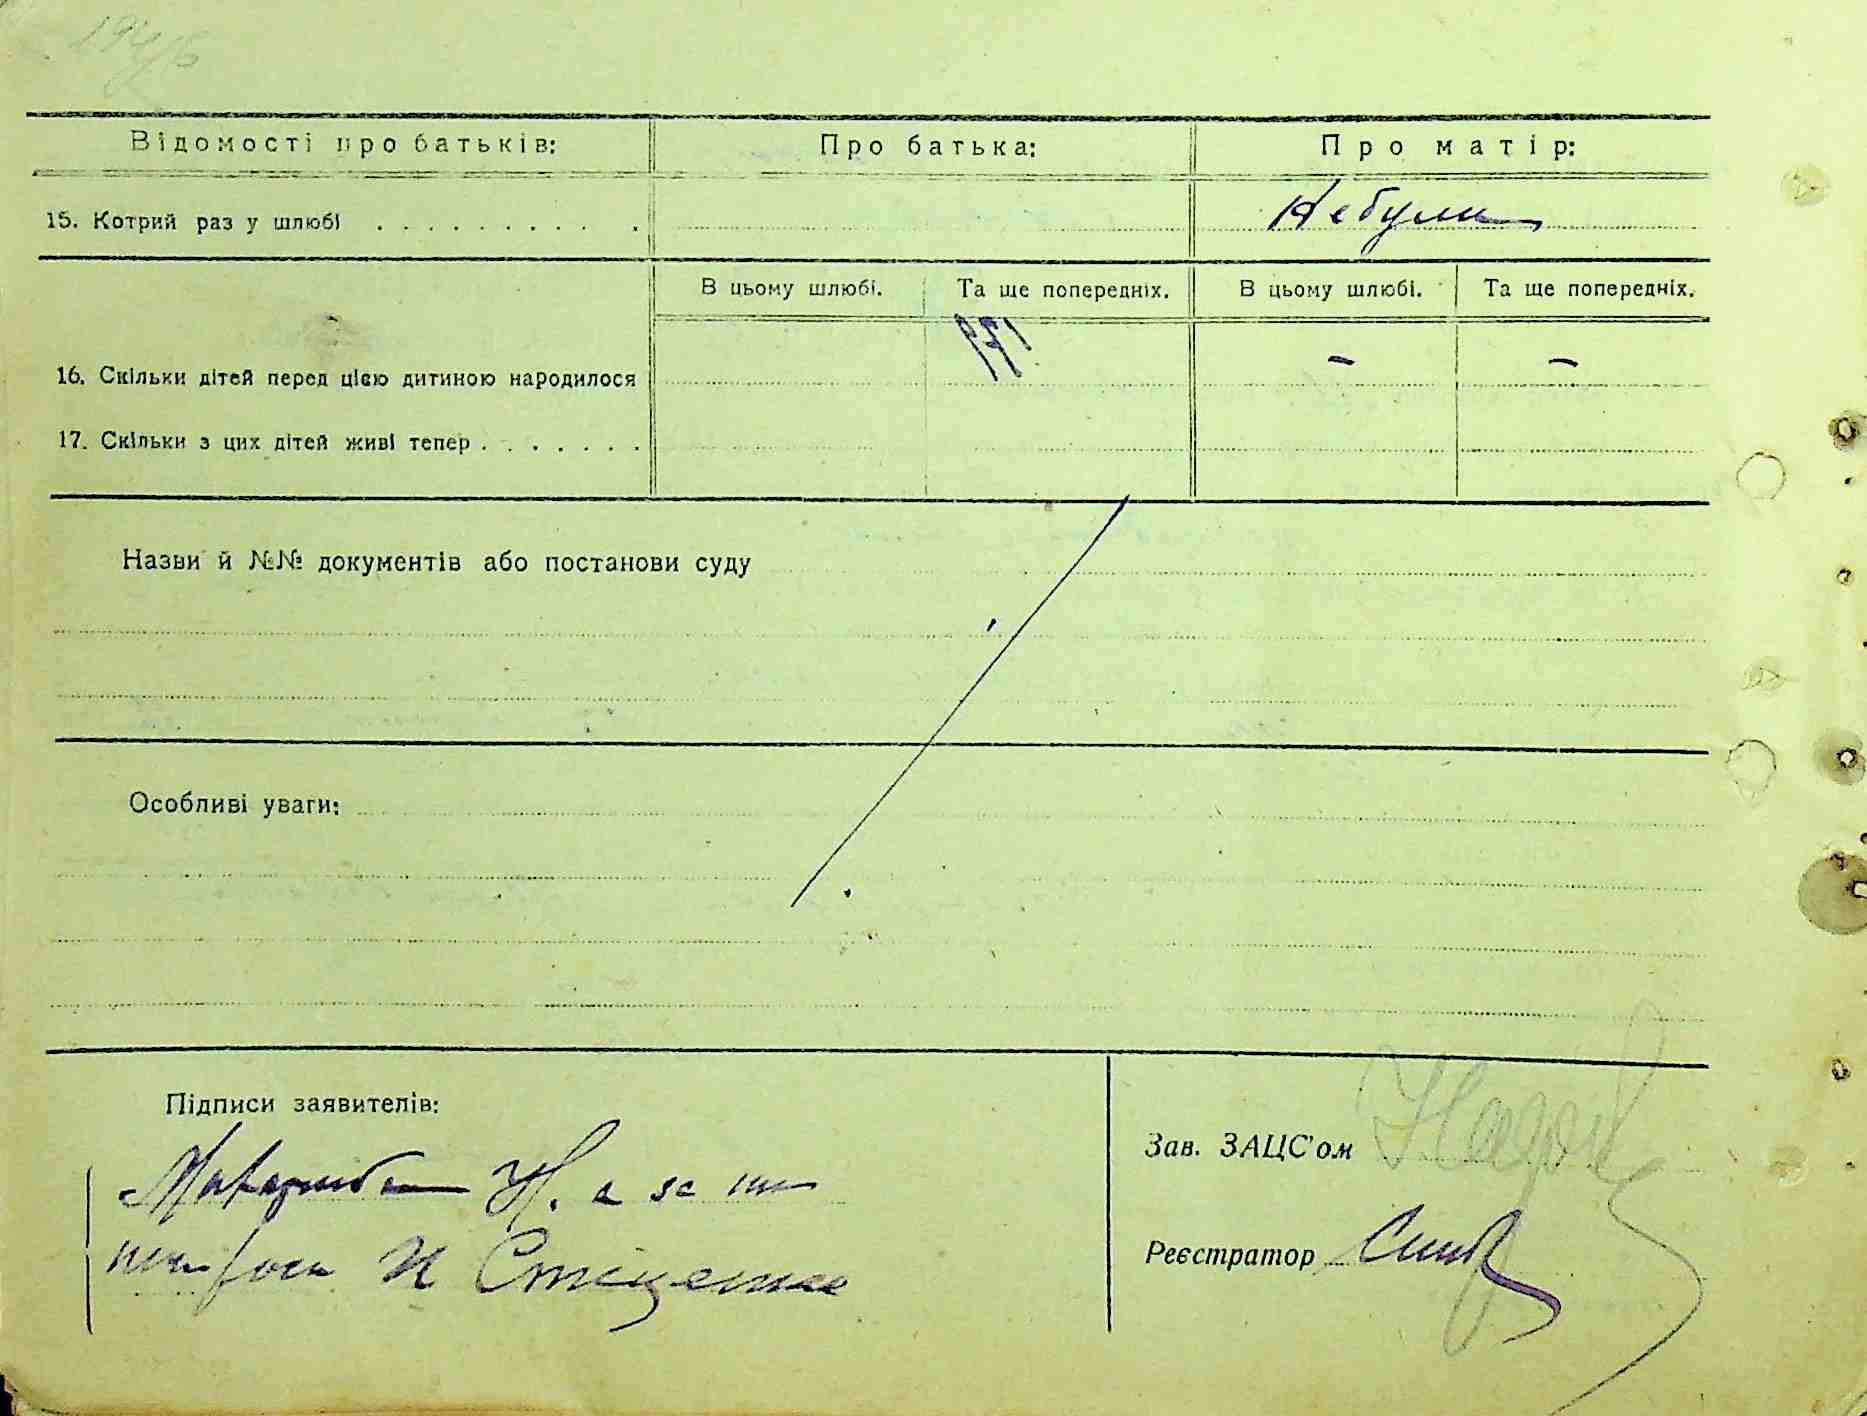 Відомості про батьків: Про батька: Про матір:
15. Котрий раз у шлюбі . . . . . . . . . . Небула
В цьому шлюбі. Та ще попередніх. В цьому шлюбі. Та ще попередніх.
16. Скільки дітей перед цією дитиною народилося – –
17. Скільки з цих дітей живі тепер . . . . . . .
Назви й №№ документів або постанови суду
Особливі уваги:
Підписи заявителів:
Зав. ЗАЦС'ом
Н. а за
Реєстратор
Стеценко